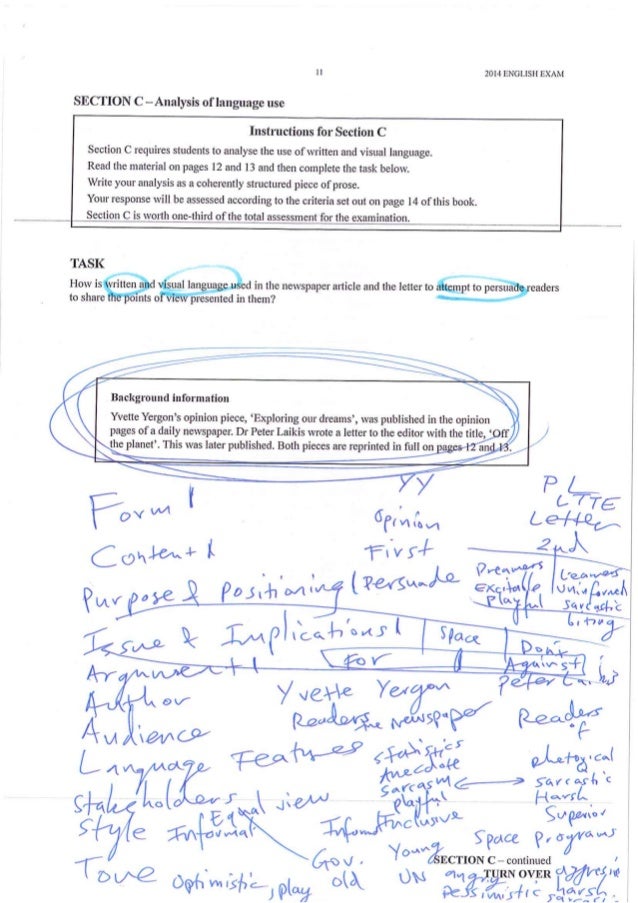 11
2014 ENGLISH EXAM
SECTION C – Analysis of language use
Instructions for Section C
Section C requires students to analyse the use of written and visual language.
Read the material on pages 12 and 13 and then complete the task below.
Write your analysis as a coherently structured piece of prose.
Your response will be assessed according to the criteria set out on page 14 of this book.
Section C is worth one-third of the total assessment for the examination.
TASK
How is written and visual language used in the newspaper article and the letter to attempt to persuade readers
to share the points of view presented in them?
Background information
Yvette Yergon's opinion piece, 'Exploring our dreams', was published in the opinion
pages of a daily newspaper. Dr Peter Laikis wrote a letter to the editor with the title, 'Off
the planet'. This was later published. Both pieces are reprinted in full on pages 12 and 13.
YY PL
LTTE
Form Opinion Letter
Content First 2nd
Purpose & Positioning / Persuade
Dreamers Excitable Playful
Learners Uninformed sarcastic biting
Issue & Implications Space Don't
Argument For Against
Author Yvette Yergon Peter
Audience Readers the Newspaper Readers of
Language Features Statistics
Anecdote
Sarcasm
playful
sarcastic
Harsh
Stakeholders Equal view Inclusive Superior
Style Informal Young Space Programs
Gov. old UN
SECTION C – continued
TURN OVER
Tone Optimistic, play angry
Pessimistic harsh